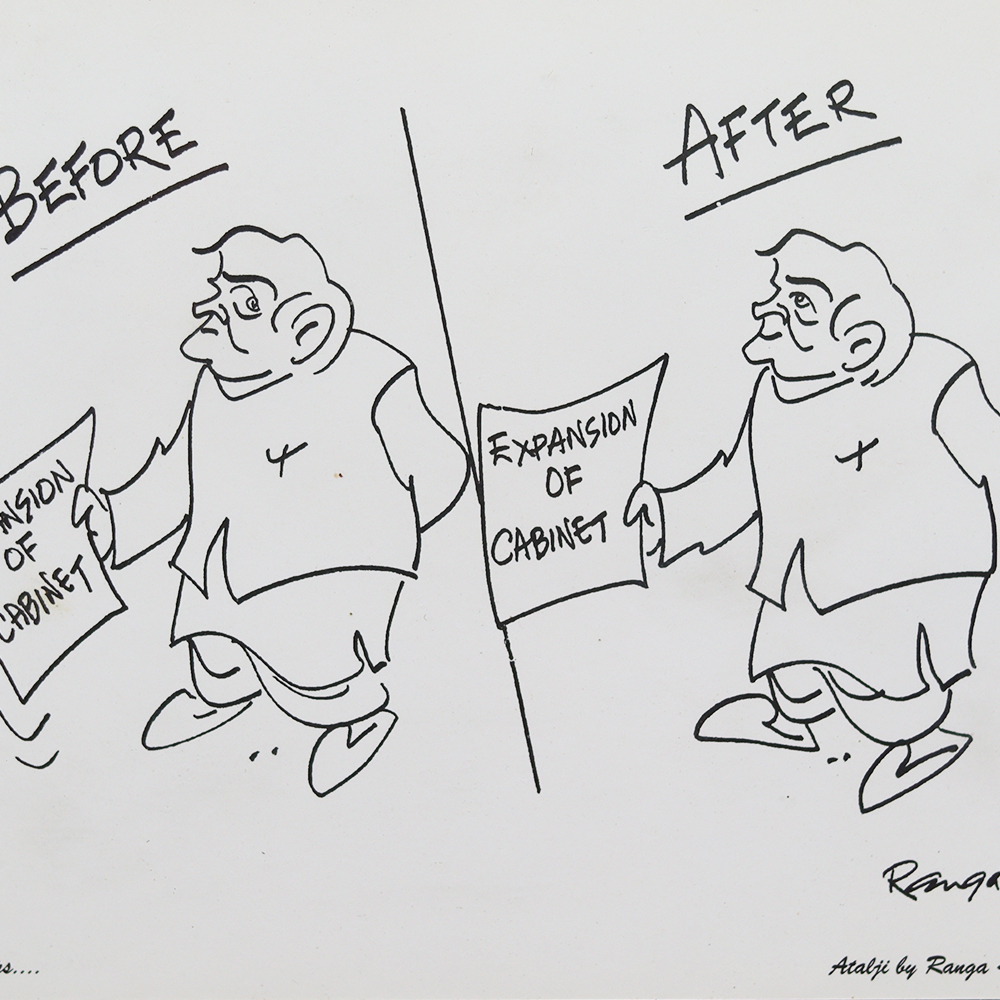 BEFORE
AFTER
NSION
OF
CABINET
EXPANSION
OF
CABINET
Ranga
Atalji by Ranga